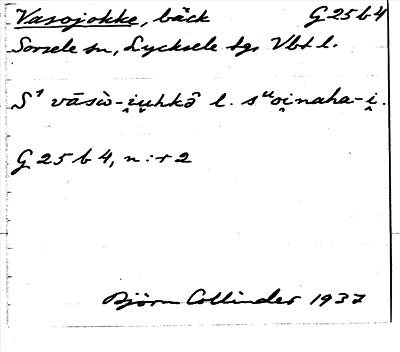 Vasojokke, bäck G 25 b 4
Sorsele sn, Lycksele tgs Vbt l.
S¹ vāsò-i̯u̯hkȏ l. sᵘoi̯naha-i̯.
G 25 b 4, n:r 2
Björn Collinder 1937